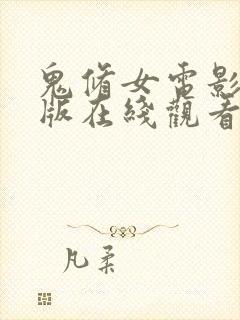 鬼脩女電影
版在綫觀看
凡柔